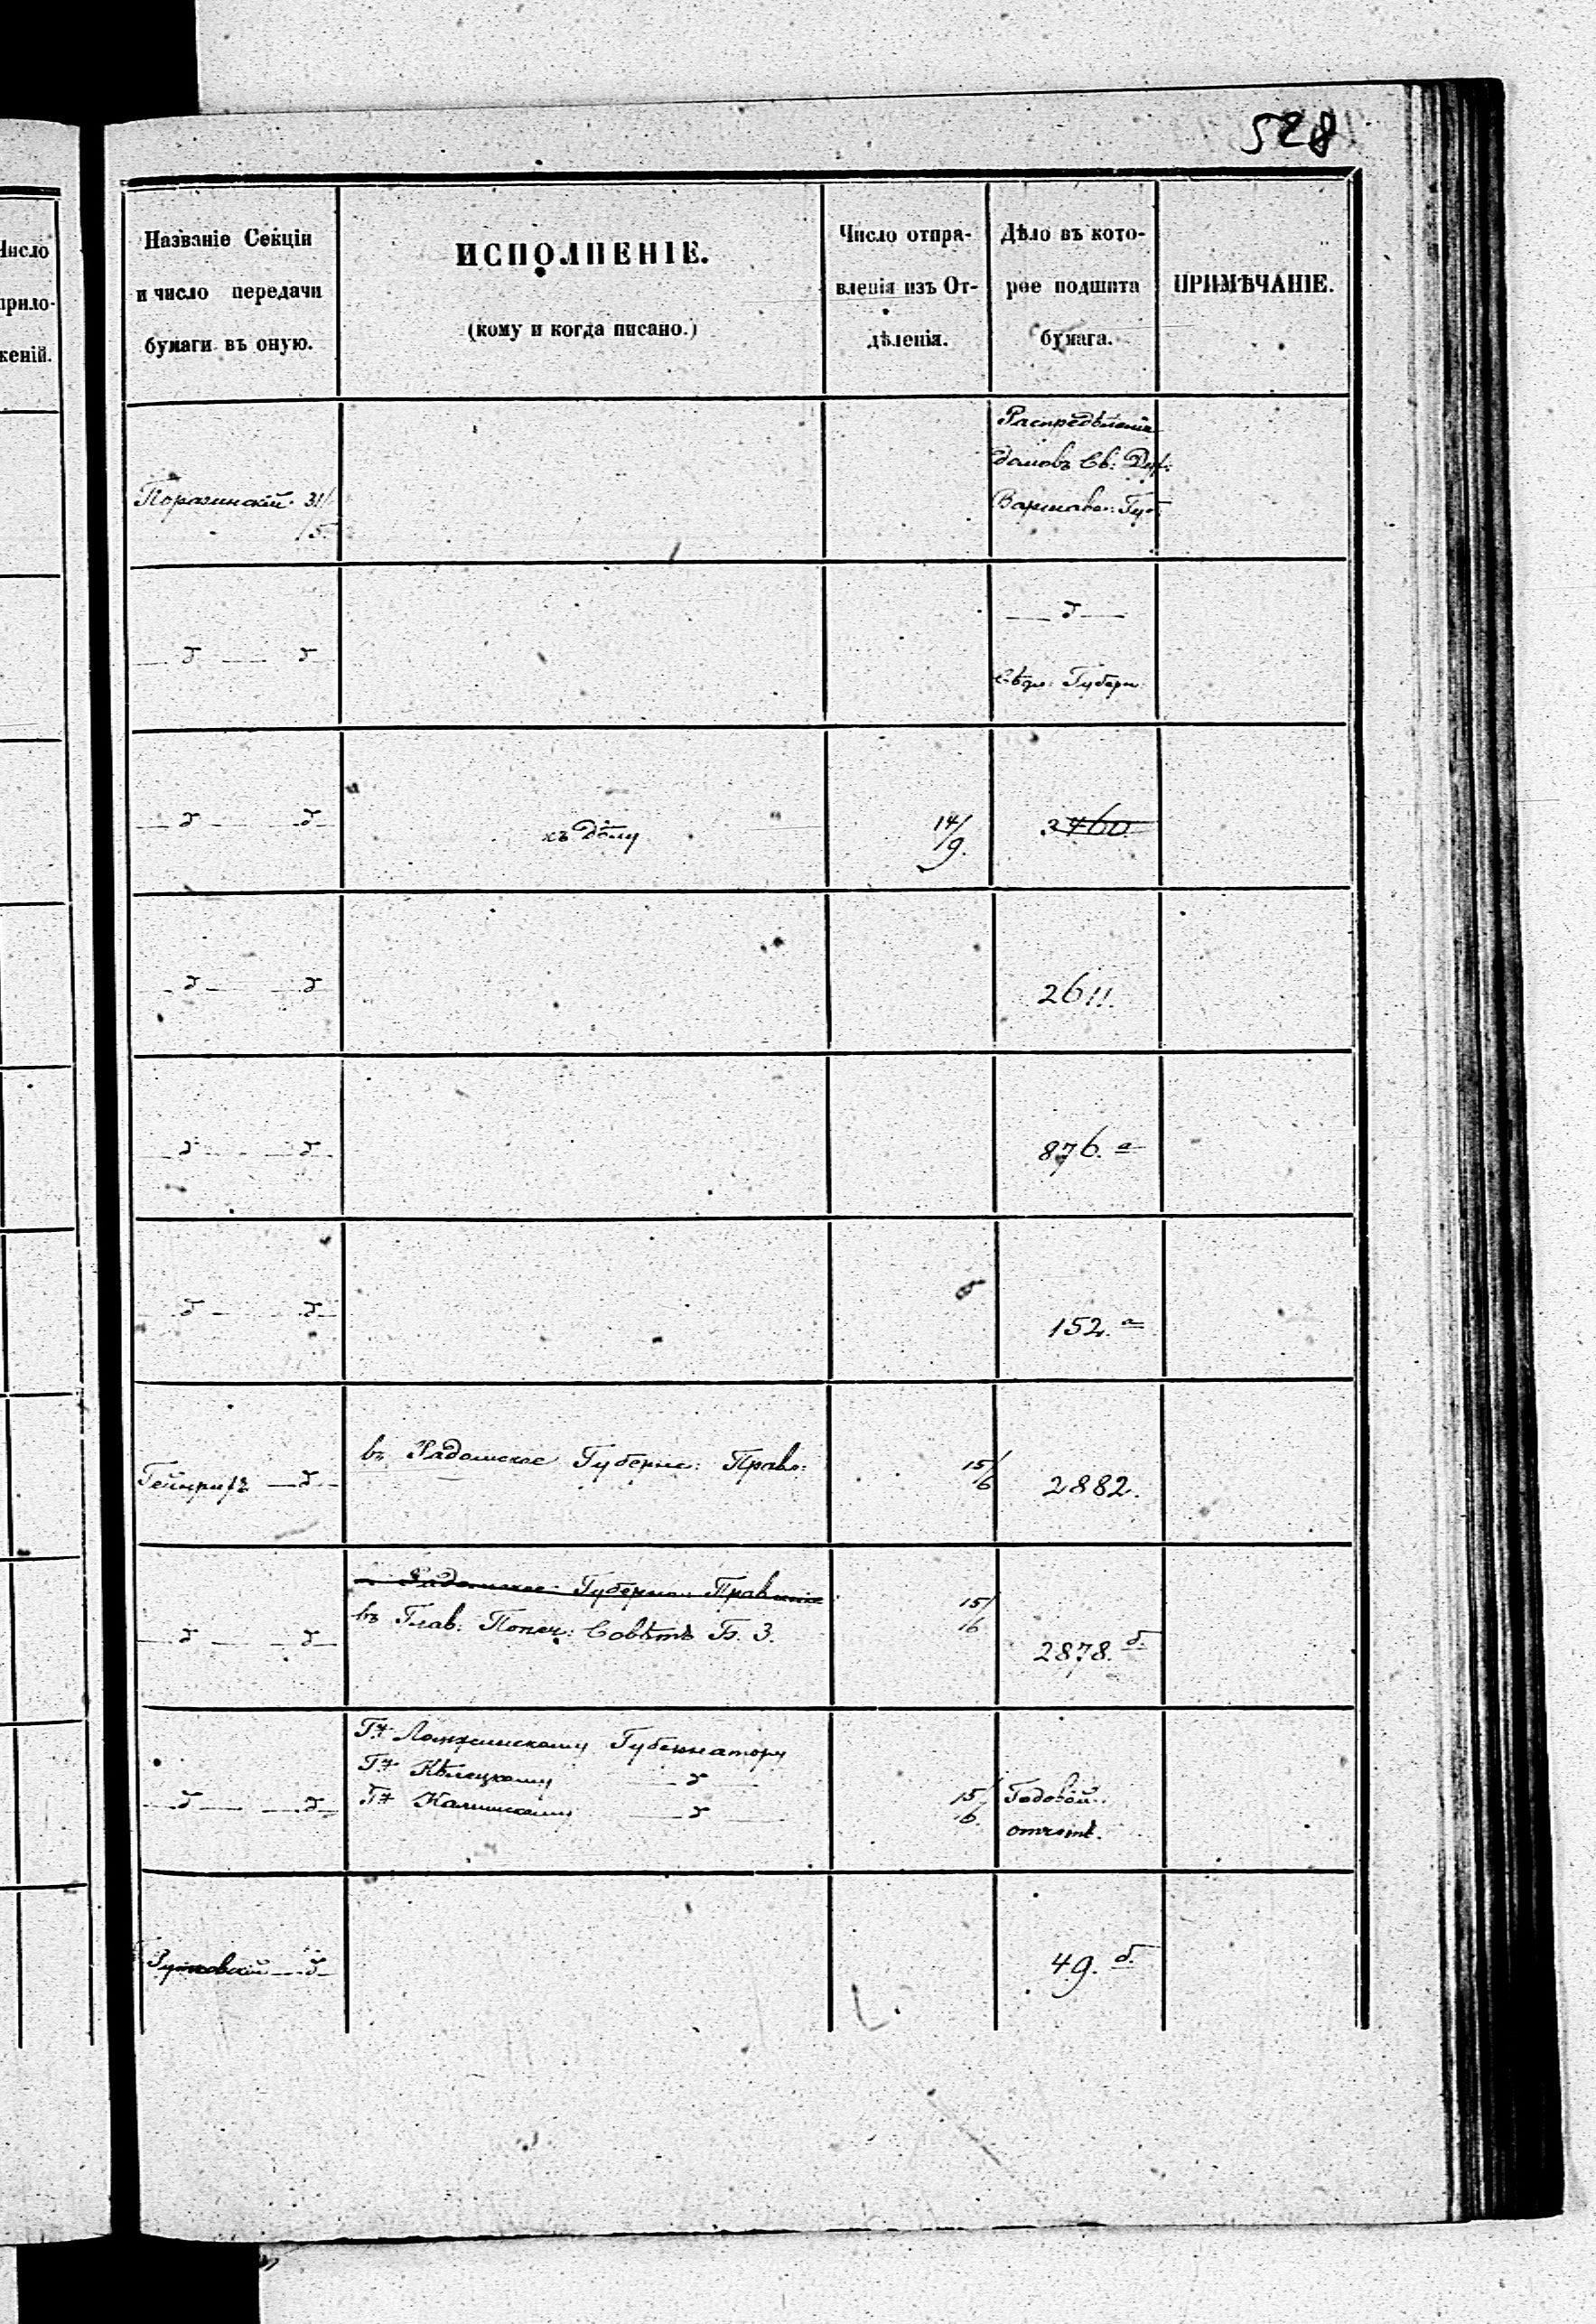 528
Число
прило-
женій.
Названіе Секціи
и число передачи
бумаги въ оную.
ИСПОЛНЕНІЕ.
(кому и когда писано.)
Число отпра-
вленія изъ От-
дѣленія.
Дѣло въ кото-
рое подшита
бумага.
ПРИМѢЧАНІЕ.
31/5
Распредѣленіе
домовъ Св: Дух:
Варшавс: Губ:
— д —
Губерн
— д — — д —
— д — — д —
къ Дѣлу
14/9.
3760
— д — — д —
2611.
— д — — д —
876. а
— д — — д —
152. а
Гейнрихъ — д —
въ Радомское Губернс: Правл:
15/6
2882.
— д — — д —
Радомское Губернс: Правленіе
въ Глав: Попеч: Совѣтъ Б. З.
15/16
2878. б.
— д — — д —
Гну Ломжинскому Губернатору
Гну Кѣлецкому — д —
Гну Калишскому — д —
15/6.
Годовой
отчетъ.
— д —
49. б.